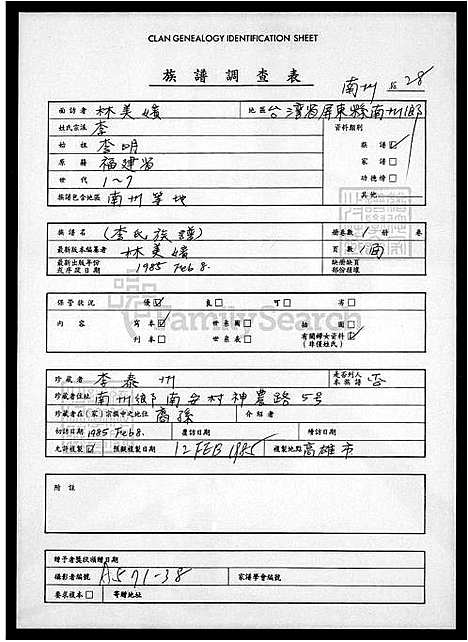 CLAN GENEALOGY IDENTIFICATION SHEET
族譜調查表
南州 28
面訪者 林美媛 地區 台灣省屏東縣南州鄉
姓氏宗派 李 資料類別
始祖 李明 族譜☑
原籍 福建省 家譜□
世代 1~7 功德榜□
族譜包含地區 南州等地 其他
族譜名 (李氏族譜) 冊卷數 1 冊 卷
最新版本編纂者 林美媛 頁數 面
最新出版年份或序跋日期 1985 Feb 8. 缺冊缺頁部份種壞
保管狀況 優☑ 良□ 可□ 劣□
內容 寫本☑ 世系圖□ 插圖□
刊本□ 世系表□ 有關婦女資料☑ (非僅姓氏)
FamilySearch
珍藏者 李泰州 是否列入本族譜 否
珍藏者住址 南州鄉南安村神農路5号
珍藏者在(家)宗族中之地位 裔孫 介紹者
初訪日期 1985 Feb 8. 覆訪日期 續訪日期
允許複製☑ 預擬複製日期 12 FEB 1985 複製地點 高雄市
附註
贈予者獎狀頒贈日期
攝影者編號 A571-38 家譜學會編號
要求複本□ 寄贈地址